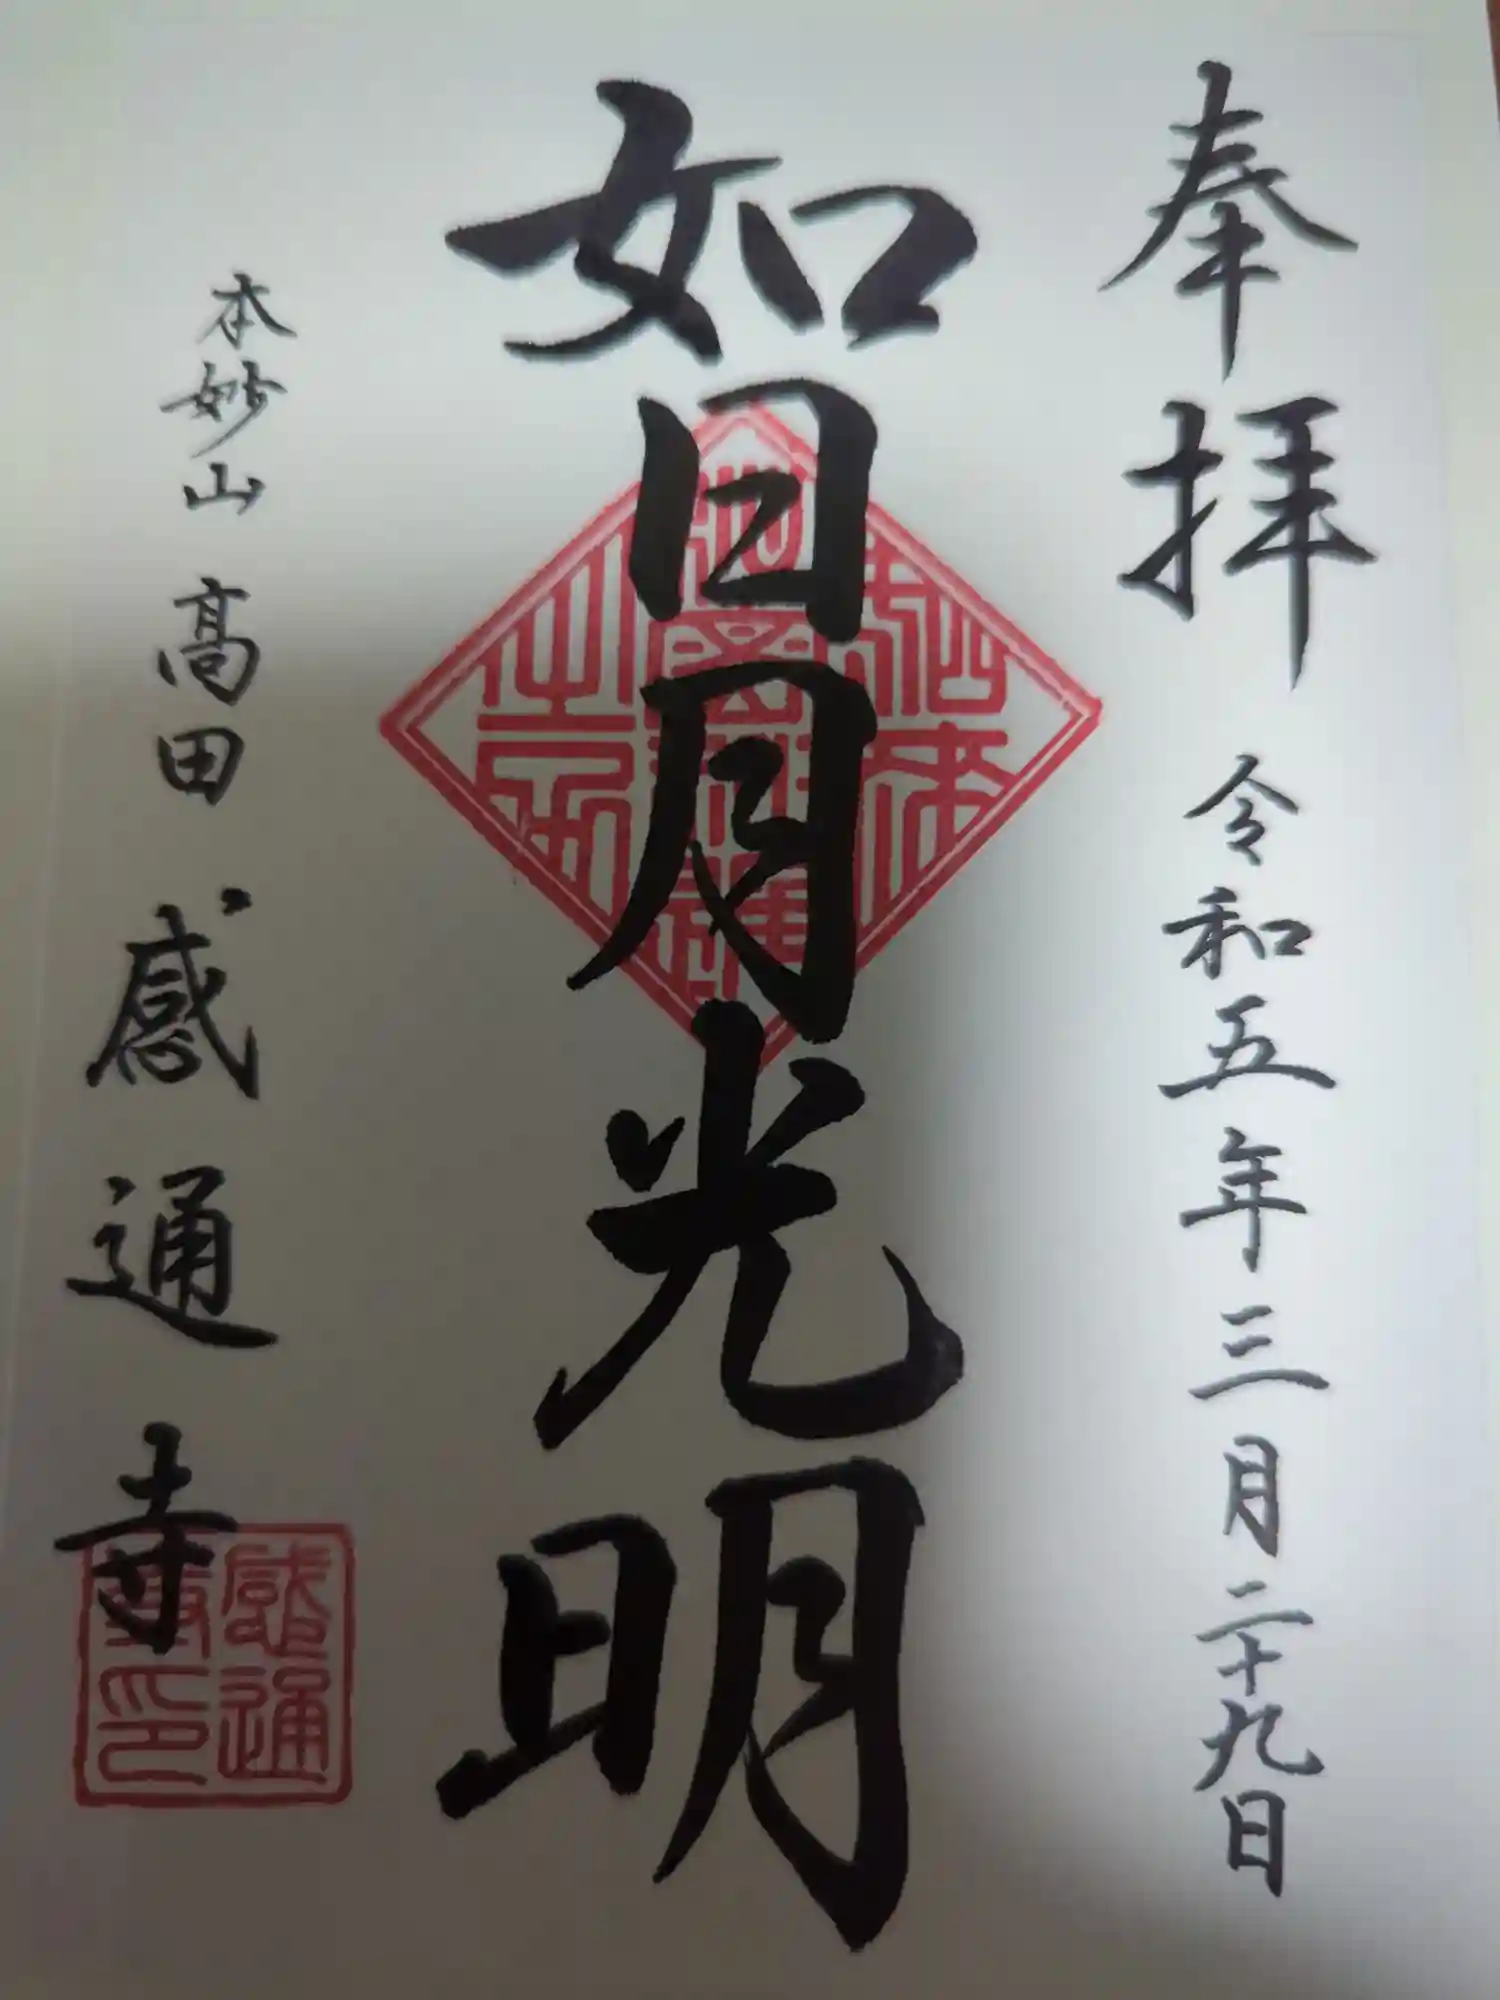 奉拝 令和五年三月二十九日
如日月光明
本妙山 高田 感通寺
感通
寺印